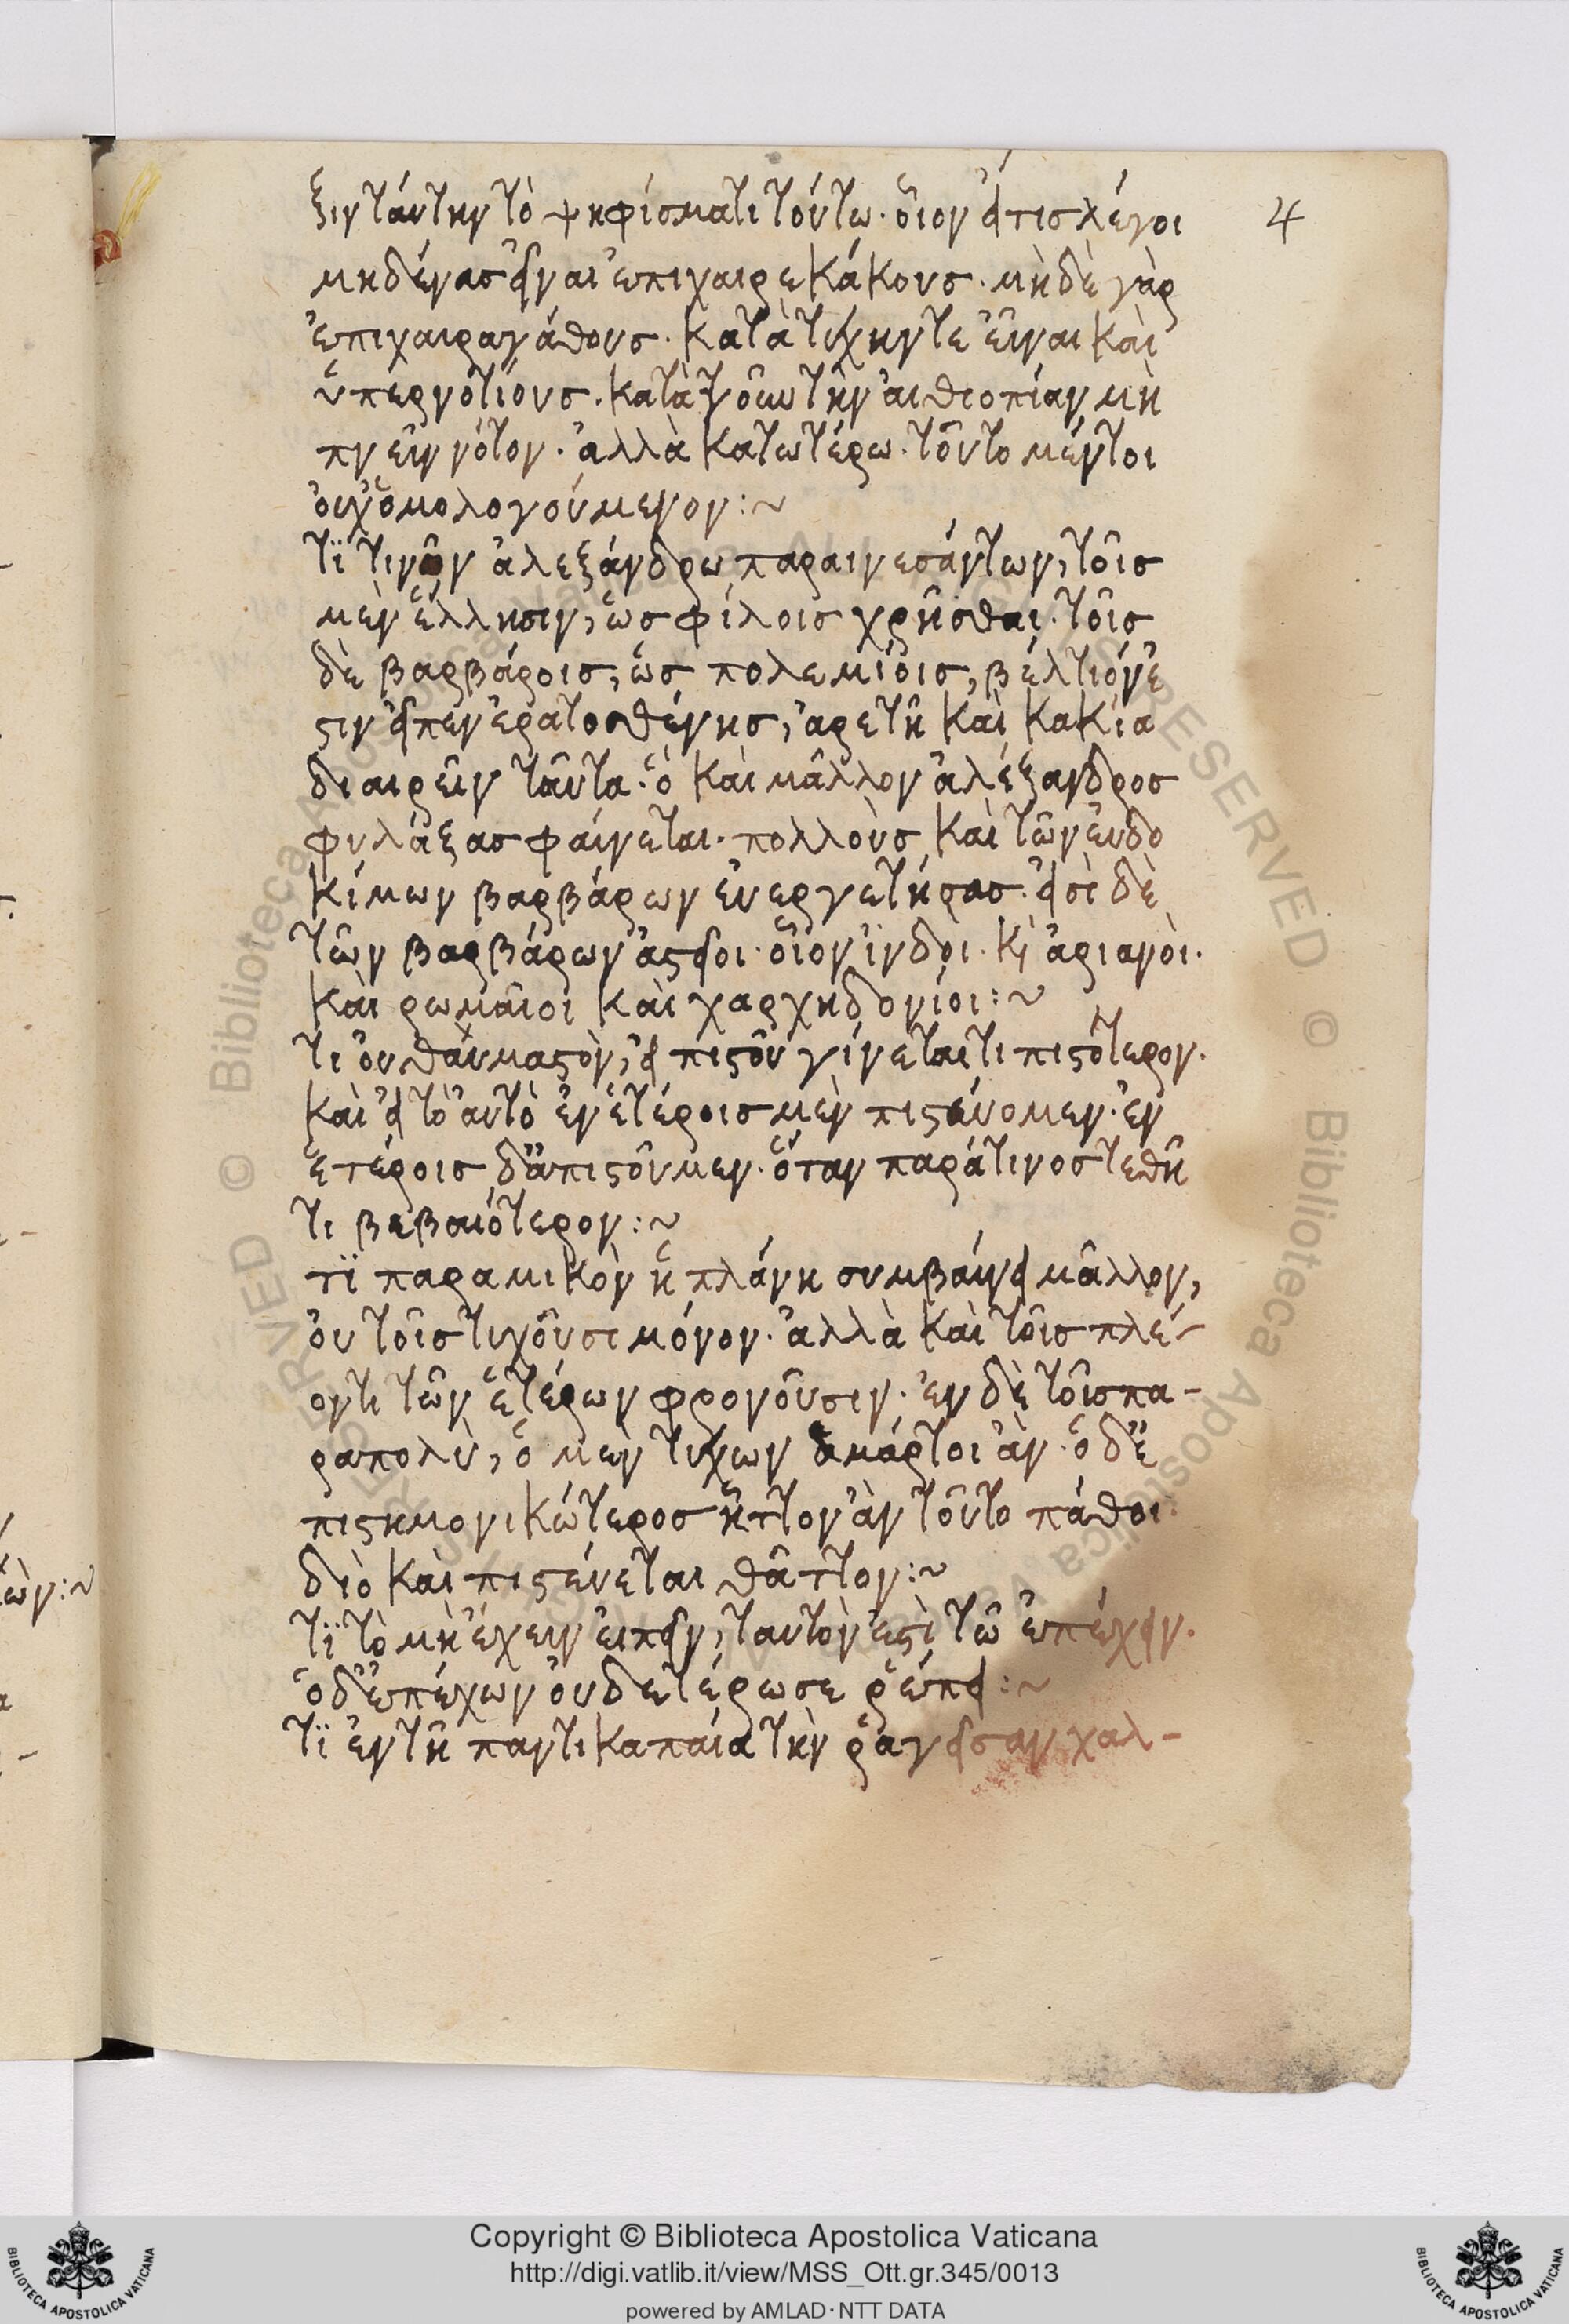 ξιν ταύτην τὸ ψηφίσματι τούτω· οἷον εἴ τις λέγοι 4
μηδένας εἶναι ἐπιχαιρεκάκους· μὴ δὲ γὰρ
ἐπιχαιραγάθους· κατὰ τύχην τε εἶναι καὶ
ὑπερνοτίους· κατὰ γοῦν τὴν αἰθιοπίαν μὴ
πνεῖν νότον· ἀλλὰ κατωτέρω· τοῦτο μέντοι
οὐχ ὁμολογούμενον:~
τϊ τινῶν ἀλεξάνδρω παραινεσάντων, τοῖς
μὲν ἕλλησιν, ὡς φίλοις χρῆσθαι· τοῖς
δὲ βαρβάροις, ὡς πολεμίοις, βέλτιόν ἐ
στιν εἶπεν ἐρατοσθένης, ἀρετῆ καὶ κακία
διαιρεῖν ταῦτα· ὃ καὶ μᾶλλον ἀλέξανδρος
φυλάξας φαίνεται· πολλοὺς καὶ τῶν εὐδο
κίμων βαρβάρων εὐεργετήσας· εἰσὶ δὲ
τῶν βαρβάρων ἀστεῖοι· οἷον ἰνδοὶ· κὶ ἀριανοὶ·
καὶ ρωμαῖοι καὶ χαρχηδονίοι:~
τι οὐ θαυμαστὸν, εἰ πιστοῦ γίνεται τι πιστότερον·
καὶ εἰ τὸ αὐτὸ ἐν ἑτέροις μὲν πιστεύομεν· ἐν
ἑτέροις δ' ἀπιστοῦμεν· ὅταν παρά τινος τεθῆ
τι βεβαιότερον:~
τϊ παραμικὸν ἡ πλάνη συμβαίνει μᾶλλον,
οὐ τοῖς τυχοῦσι μόνον· ἀλλὰ καὶ τοῖς πλέ-
ον τι τῶν ἑτέρων φρονοῦσιν· ἐν δὲ τοῖς πα-
ραπολὺ, ὁ μὲν τυχων ἁμάρτοι ἀν· ὁ δ' ἐ
πιστημονικώτερος ἧττον ἀν τοῦτο πάθοι·
διὸ καὶ πιστεύεται θᾶττον:~
τϊ τὸ μὴ ἔχειν εἰπεῖν, ταυτὸν ἐστὶ τῶ ἐπέχειν·
ὁ δ' ἐπέχων οὐδετέρωσε ῥέπει:~
τϊ ἐν τῆ παντικαπαία τὴν ῥαγεῖσαν χαλ-
Copyright © Biblioteca Apostolica Vaticana
http://digi.vatlib.it/view/MSS_Ott.gr.345/0013
powered by AMLAD · NTT DATA
BIBLIOTECA APOSTOLICA VATICANA
BIBLIOTECA APOSTOLICA VATICANA